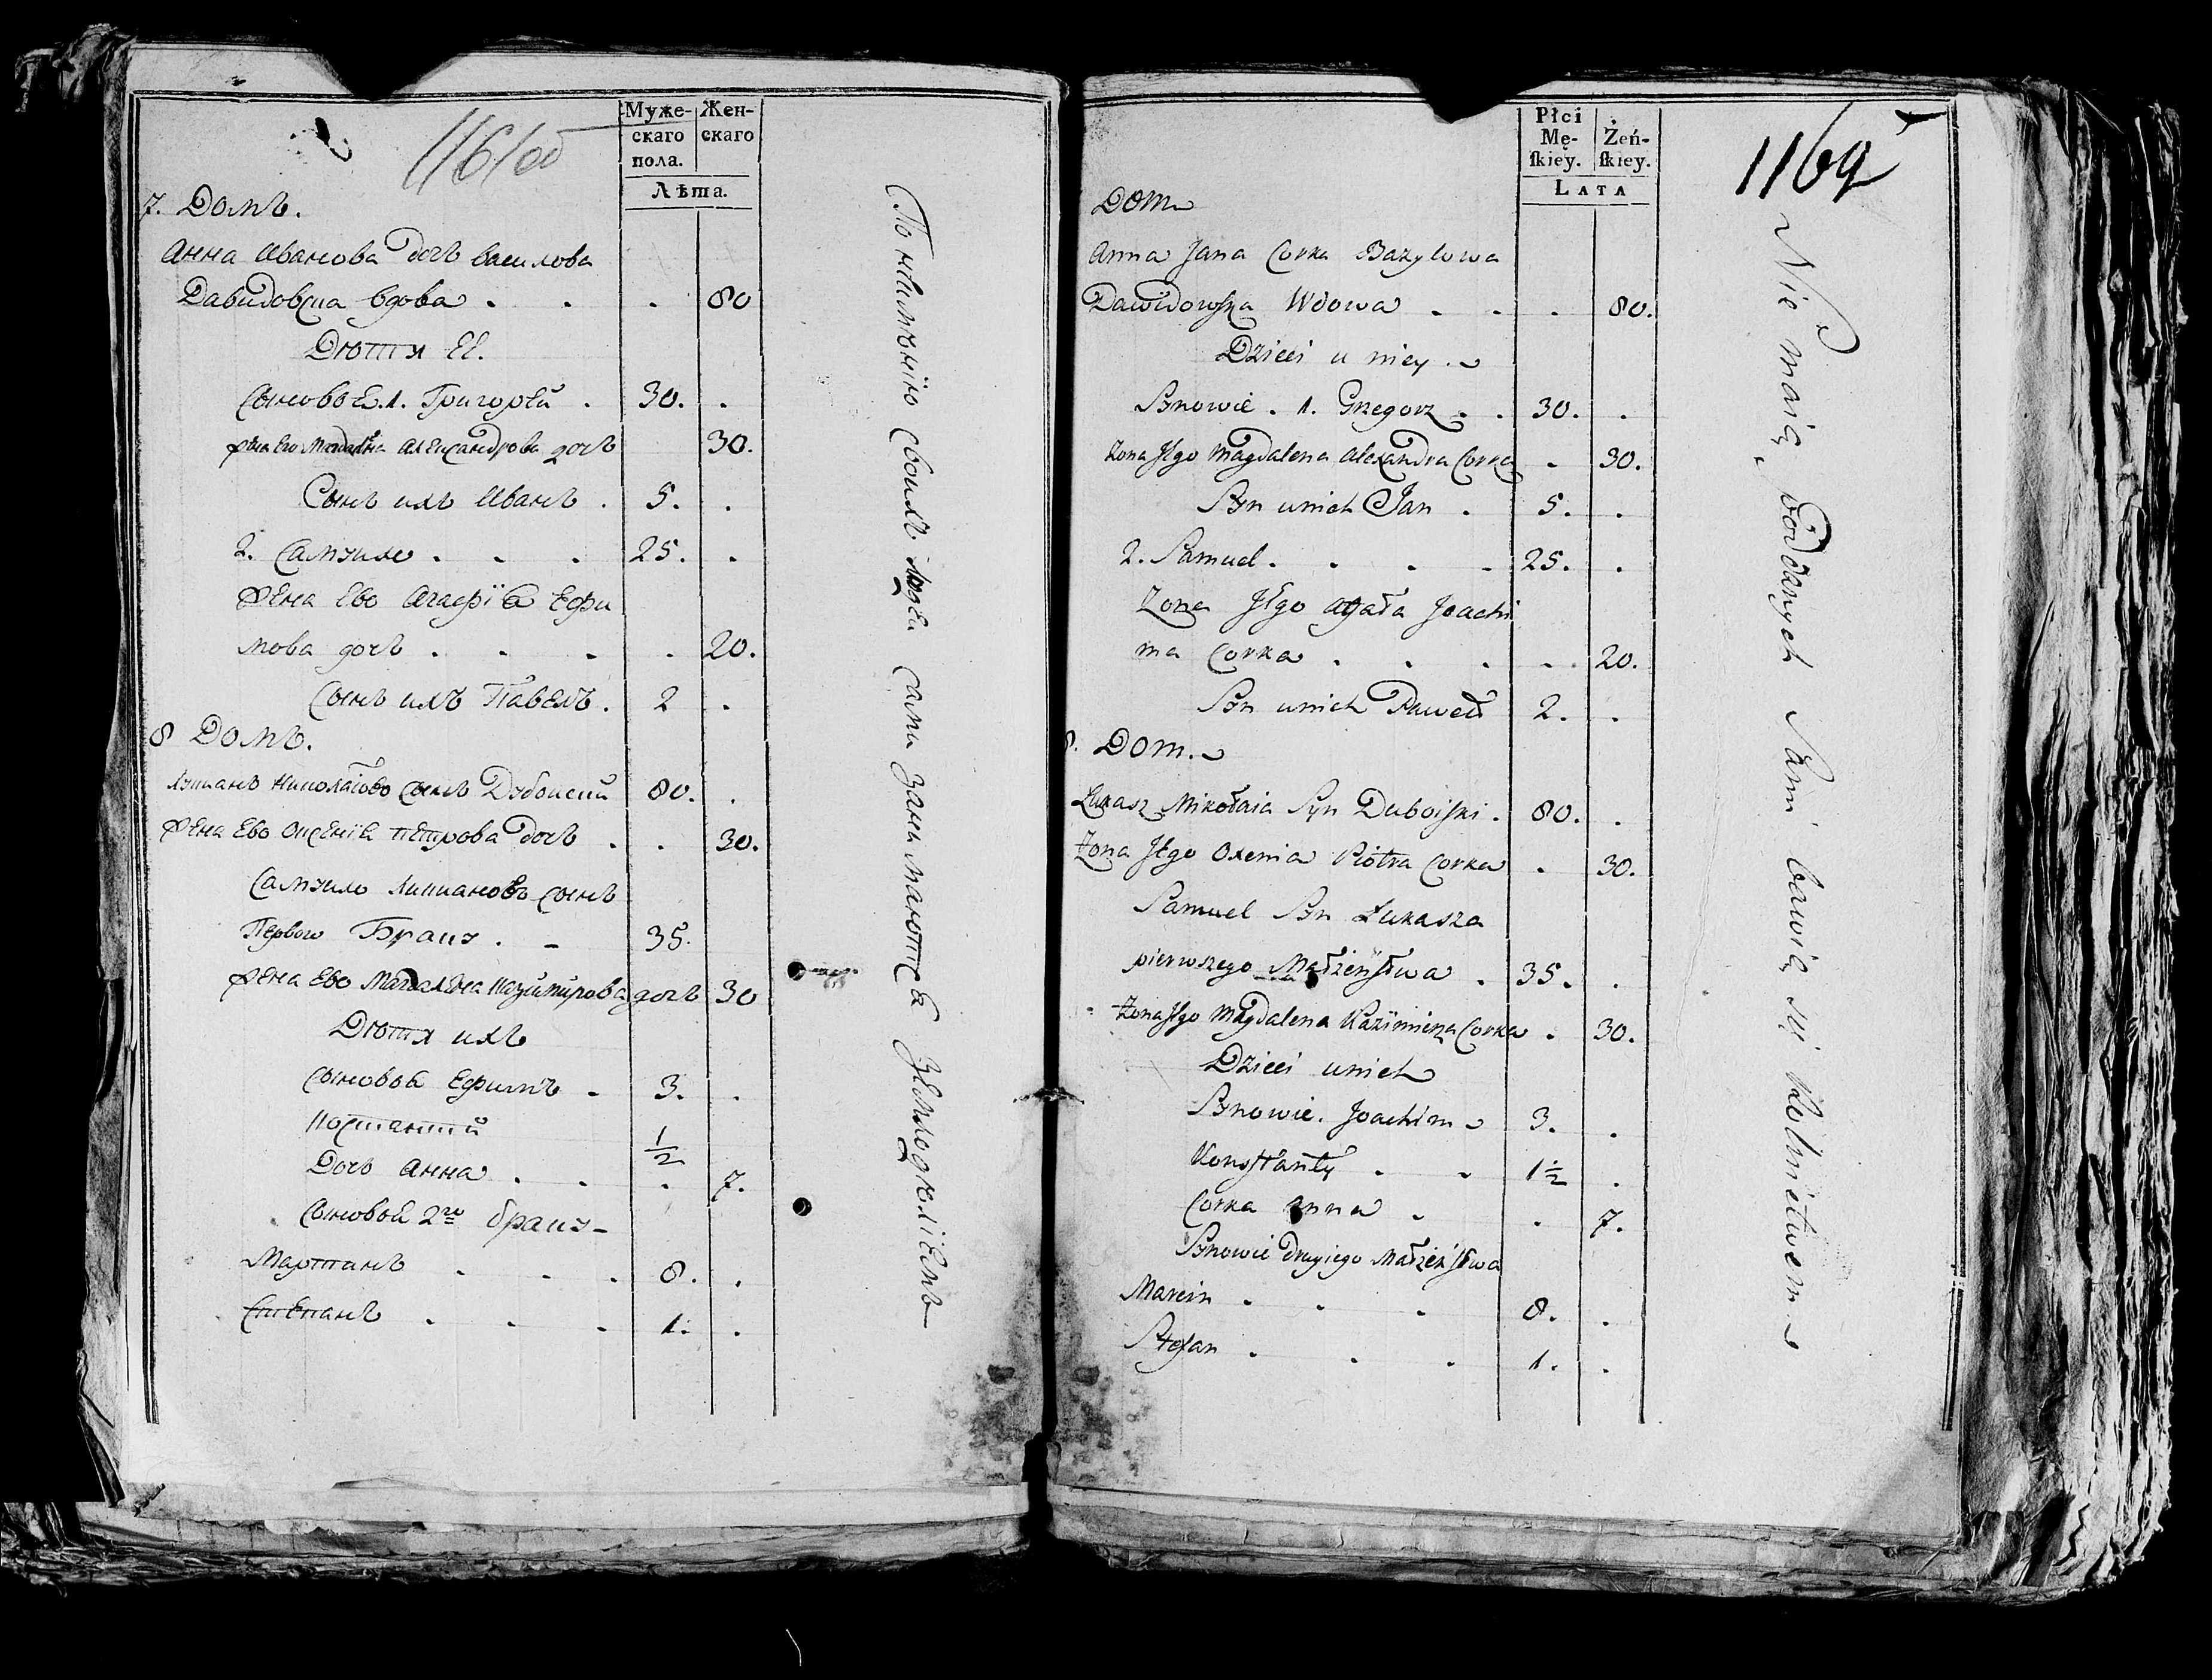 116 об
Муже-
скаго
пола.
Жен-
скаго
Лѣта.
7. Домъ.
Анна Иванова дочь Василова
Давидовска вдова . . . 80
Дѣти ее.
Сыновья. 1. Григорей . 30. .
жена его Магдалѣна Александрова дочь 30.
Сынъ ихъ Иванъ . 5. .
2. Самуило . . . 25. .
жена ево Агафїа Ефи
мова дочь . . . . 20.
Сынъ ихъ Павелъ . 2 .
8 Домъ.
Лукианъ Николаево сынъ Дубоиский 80. .
жена ево Оксенїя Петрова дочь . . 30.
Самуило Лукиановъ сынъ
Первого Браку . - 35.
жена ево Магдалѣна Казимирова дочь 30
Дѣти ихъ
Сыновья Ефимъ . 3. .
Костантий 1/2
Дочь Анна . . . 7.
Сыновья 2го браку -
Мартинъ . . . 8. .
Степанъ . . . 1. .
По неимѣнїю своихъ людей сами занимаются земледѣлїемъ
Płci
Mę-
ſkiey.
Żeń-
ſkiey.
LATA
1169
Dom
Anna Jana Corka Bazylowa
Dawidowska Wdowa . . . 80.
Dzieci u niey .
Synowie . 1. Grzegorz . . 30. .
Zona Jego Magdalena Alexandra Corka . 30.
Syn unich Jan . 5. .
2. Samuel . . . . 25. .
Zona Jego Agata Joachi
ma Corka . . . . . 20.
Syn unich Paweł 2. .
8. Dom.
Łukasz Mikołaia Syn Duboiski . 80. .
Zona Jego Oxenia Piotra Corka . 30.
Samuel Syn Łukasza
pierwszego Małżeństwa . 35. .
Zona Jego Magdalena Kazimierza Corka . 30.
Dzieci unich
Synowie. Joachim 3. .
Konstanty . . 1 1/2 .
Corka Anna . . 7.
Synowie drugiego Małżeństwa
Marcin . . . 8. .
Stefan . . . 1. .
Nie maią poddanych Sami bawią się Rolnictwem